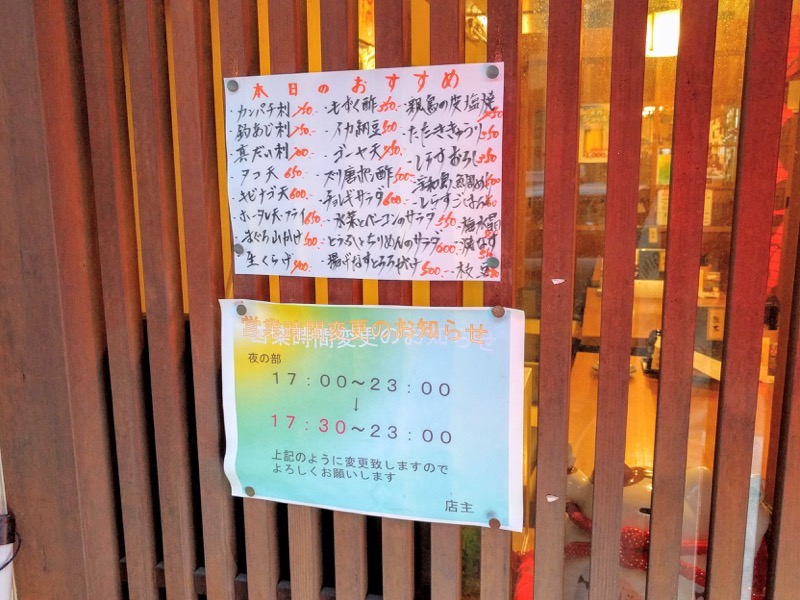 本日のおすすめ
・カンパチ刺 750
・釣あじ刺 750
・真だい刺 700
・タコ天 650
・キビナゴ天 600
・ホータレ天・フライ 650
・まぐろ山かけ 500
・生くらげ 400
・もずく酢 350
・イカ納豆 500
・ゴーヤ天 450
・チョレギサラダ 600
・水菜とベーコンのサラダ 550
・とうふとちりめんのサラダ 600
・揚げなすとろろがけ 500
・親鳥の炭塩焼
・たたききゅうり 350
・しらすおろし 350
・しらすごはん
・枝豆
営業時間変更のお知らせ
夜の部
17:00～23:00
↓
17:30～23:00
上記のように変更致しますので
よろしくお願いします
店主